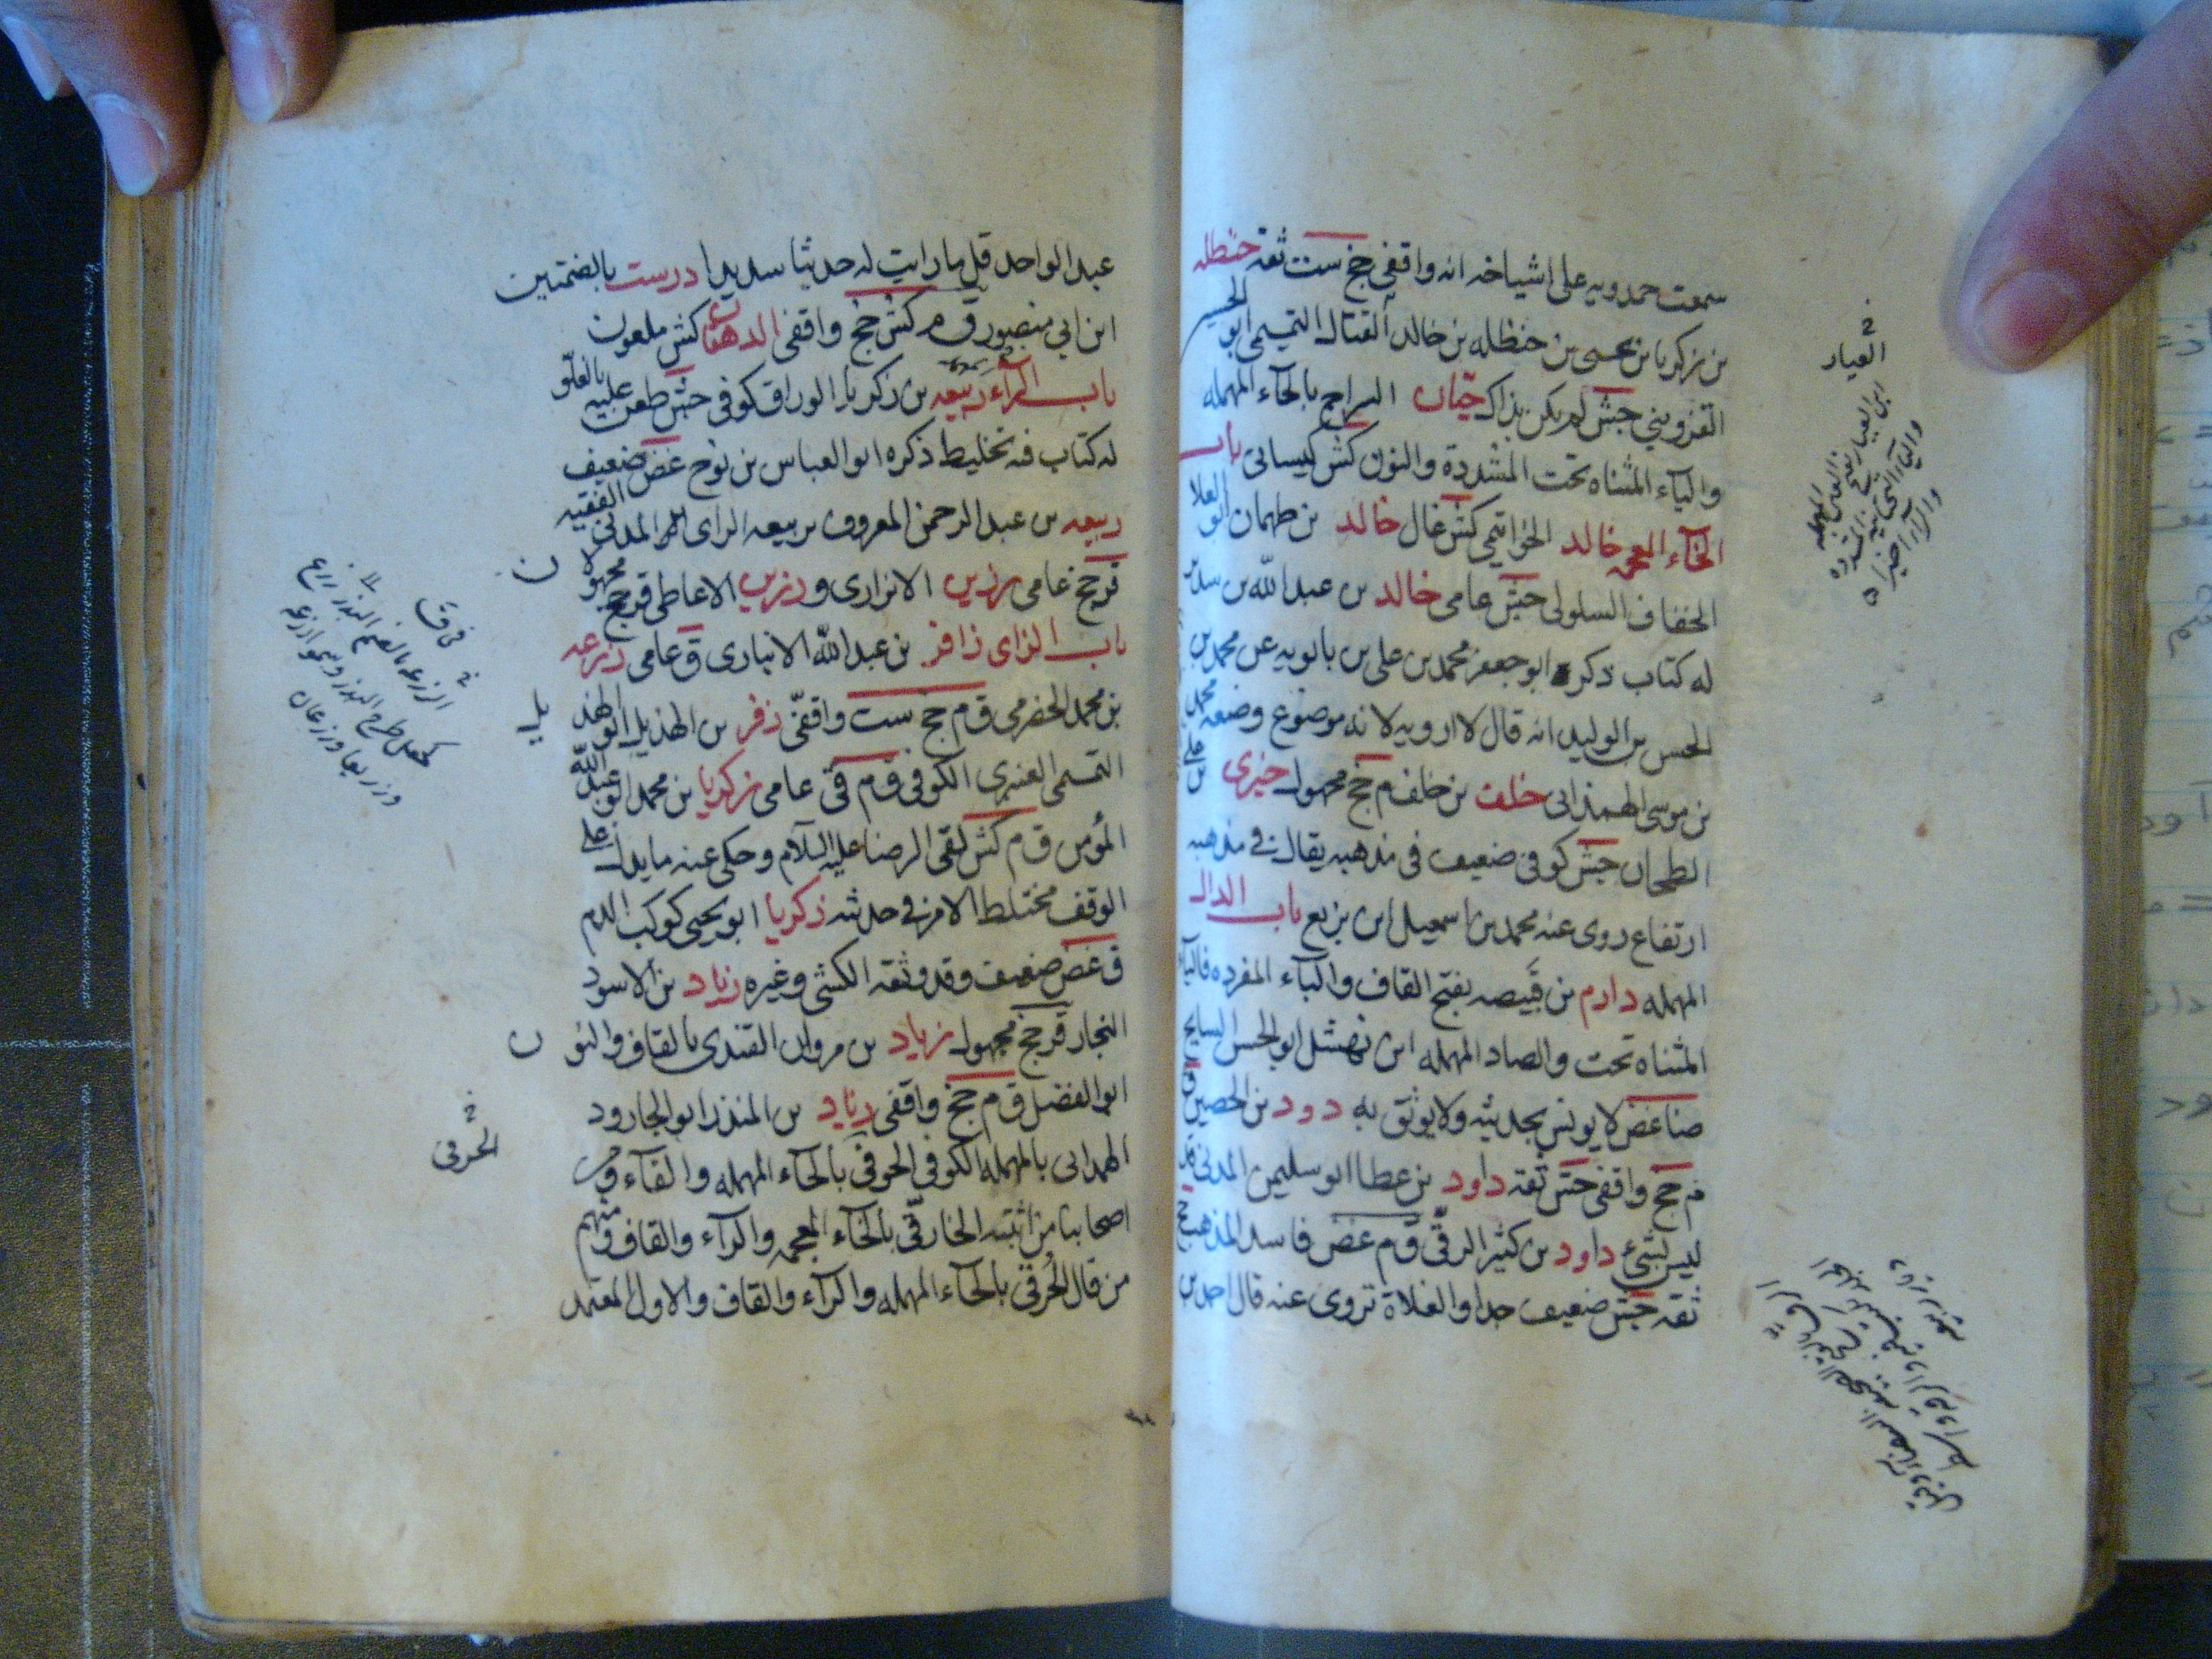 سمعت حمدويه على اشياخه انه واقفى جخ ست ثقه حنظله
بن زكريا بن يحيى بن حنظله بن خالد القتال التميمى ابو الحسين
القزوينى جش لم يكن بذاك حيان السراج بالحاء المهمله
والياء المثناه تحت المشددة والنون كش كيسانى باب
الخاء المعجمه خالد الخواتيمى كش غال خالد بن طهمان ابو العلا
الخفاف السلولى جش عامى خالد بن عبد الله بن سدير
له كتاب ذكر ابو جعفر محمد بن على بن بابويه عن محمد بن
الحسن بن الوليد انه قال لا ارويه لانه موضوع وضعه محمد
بن موسى الهمدانى خلف بن خلف م جخ مجهول خيبرى بن على
الطحان جش كوفى ضعيف فى مذهبه يقال فى مذهبه
ارتفاع روى عنه محمد بن اسمعيل ابن بزيع باب الدال
المهمله دارم بن قبيصه بفتح القاف والباء المفرده فالياء
المثناه تحت والصاد المهمله ابن نهشل ابو الحسن السايح
ضا غض لا يونس بحديثه ولا يوثق به دود بن الحصين ق
م جخ واقفى جش ثقه داود بن عطا ابو سليمن المدنى
ليس بشئ داود بن كثير الرقى ق م غض فاسد المذهب
ثقه جش ضعيف جدا والغلاة تروى عنه قال احمد بن
العيار
عبد الواحد قل ما رايت له حديثا سديدا درست بالضمتين
ابن ابي منصور ق م كش جخ واقفى الدهقان كش ملعون
باب الراء ربيعه بن زكريا الوراق كوفى جش طعن عليه بالغلو
له كتاب فيه تخليط ذكره ابو العباس بن نوح غض ضعيف
ربيعه بن عبد الرحمن المعروف بربيعه الراى المدنى الفقيه
قر جخ عامى رزين الانزارى و رزين الاعاطى قر جخ مجهولا
باب الزاى زافر بن عبد الله الانبارى ق عامى زرعه
بن محمد الحضرمى ق م جخ ست واقفى زفر بن الهذيل ابو الهذيل
التميمى العنبرى الكوفى ق م قى عامى زكريا بن محمد ابو عبد الله
المؤمن ق م كش لقى الرضا عليه السلام وحكى عنه ما يدل على
الوقف مختلط الامر فى حديثه زكريا ابو يحيى كوكب الدم
ق غض ضعيف وقد وثقه الكشى وغيره زياد بن الاسود
النجار قر جخ مجهول زياد بن مروان القندى بالقاف والنون
ابو الفضل ق م جخ واقفى زياد بن المنذر ابو الجارود
الهمدانى بالمهمله الكوفى الحوفى بالحاء المهمله والفاء ومن
اصحابنا من اثبته الخارقى بالخاء المعجمه والراء والقاف ومنهم
من قال الحرقى بالحاء المهمله والراء والقاف والاول المعتمد
الحرقى